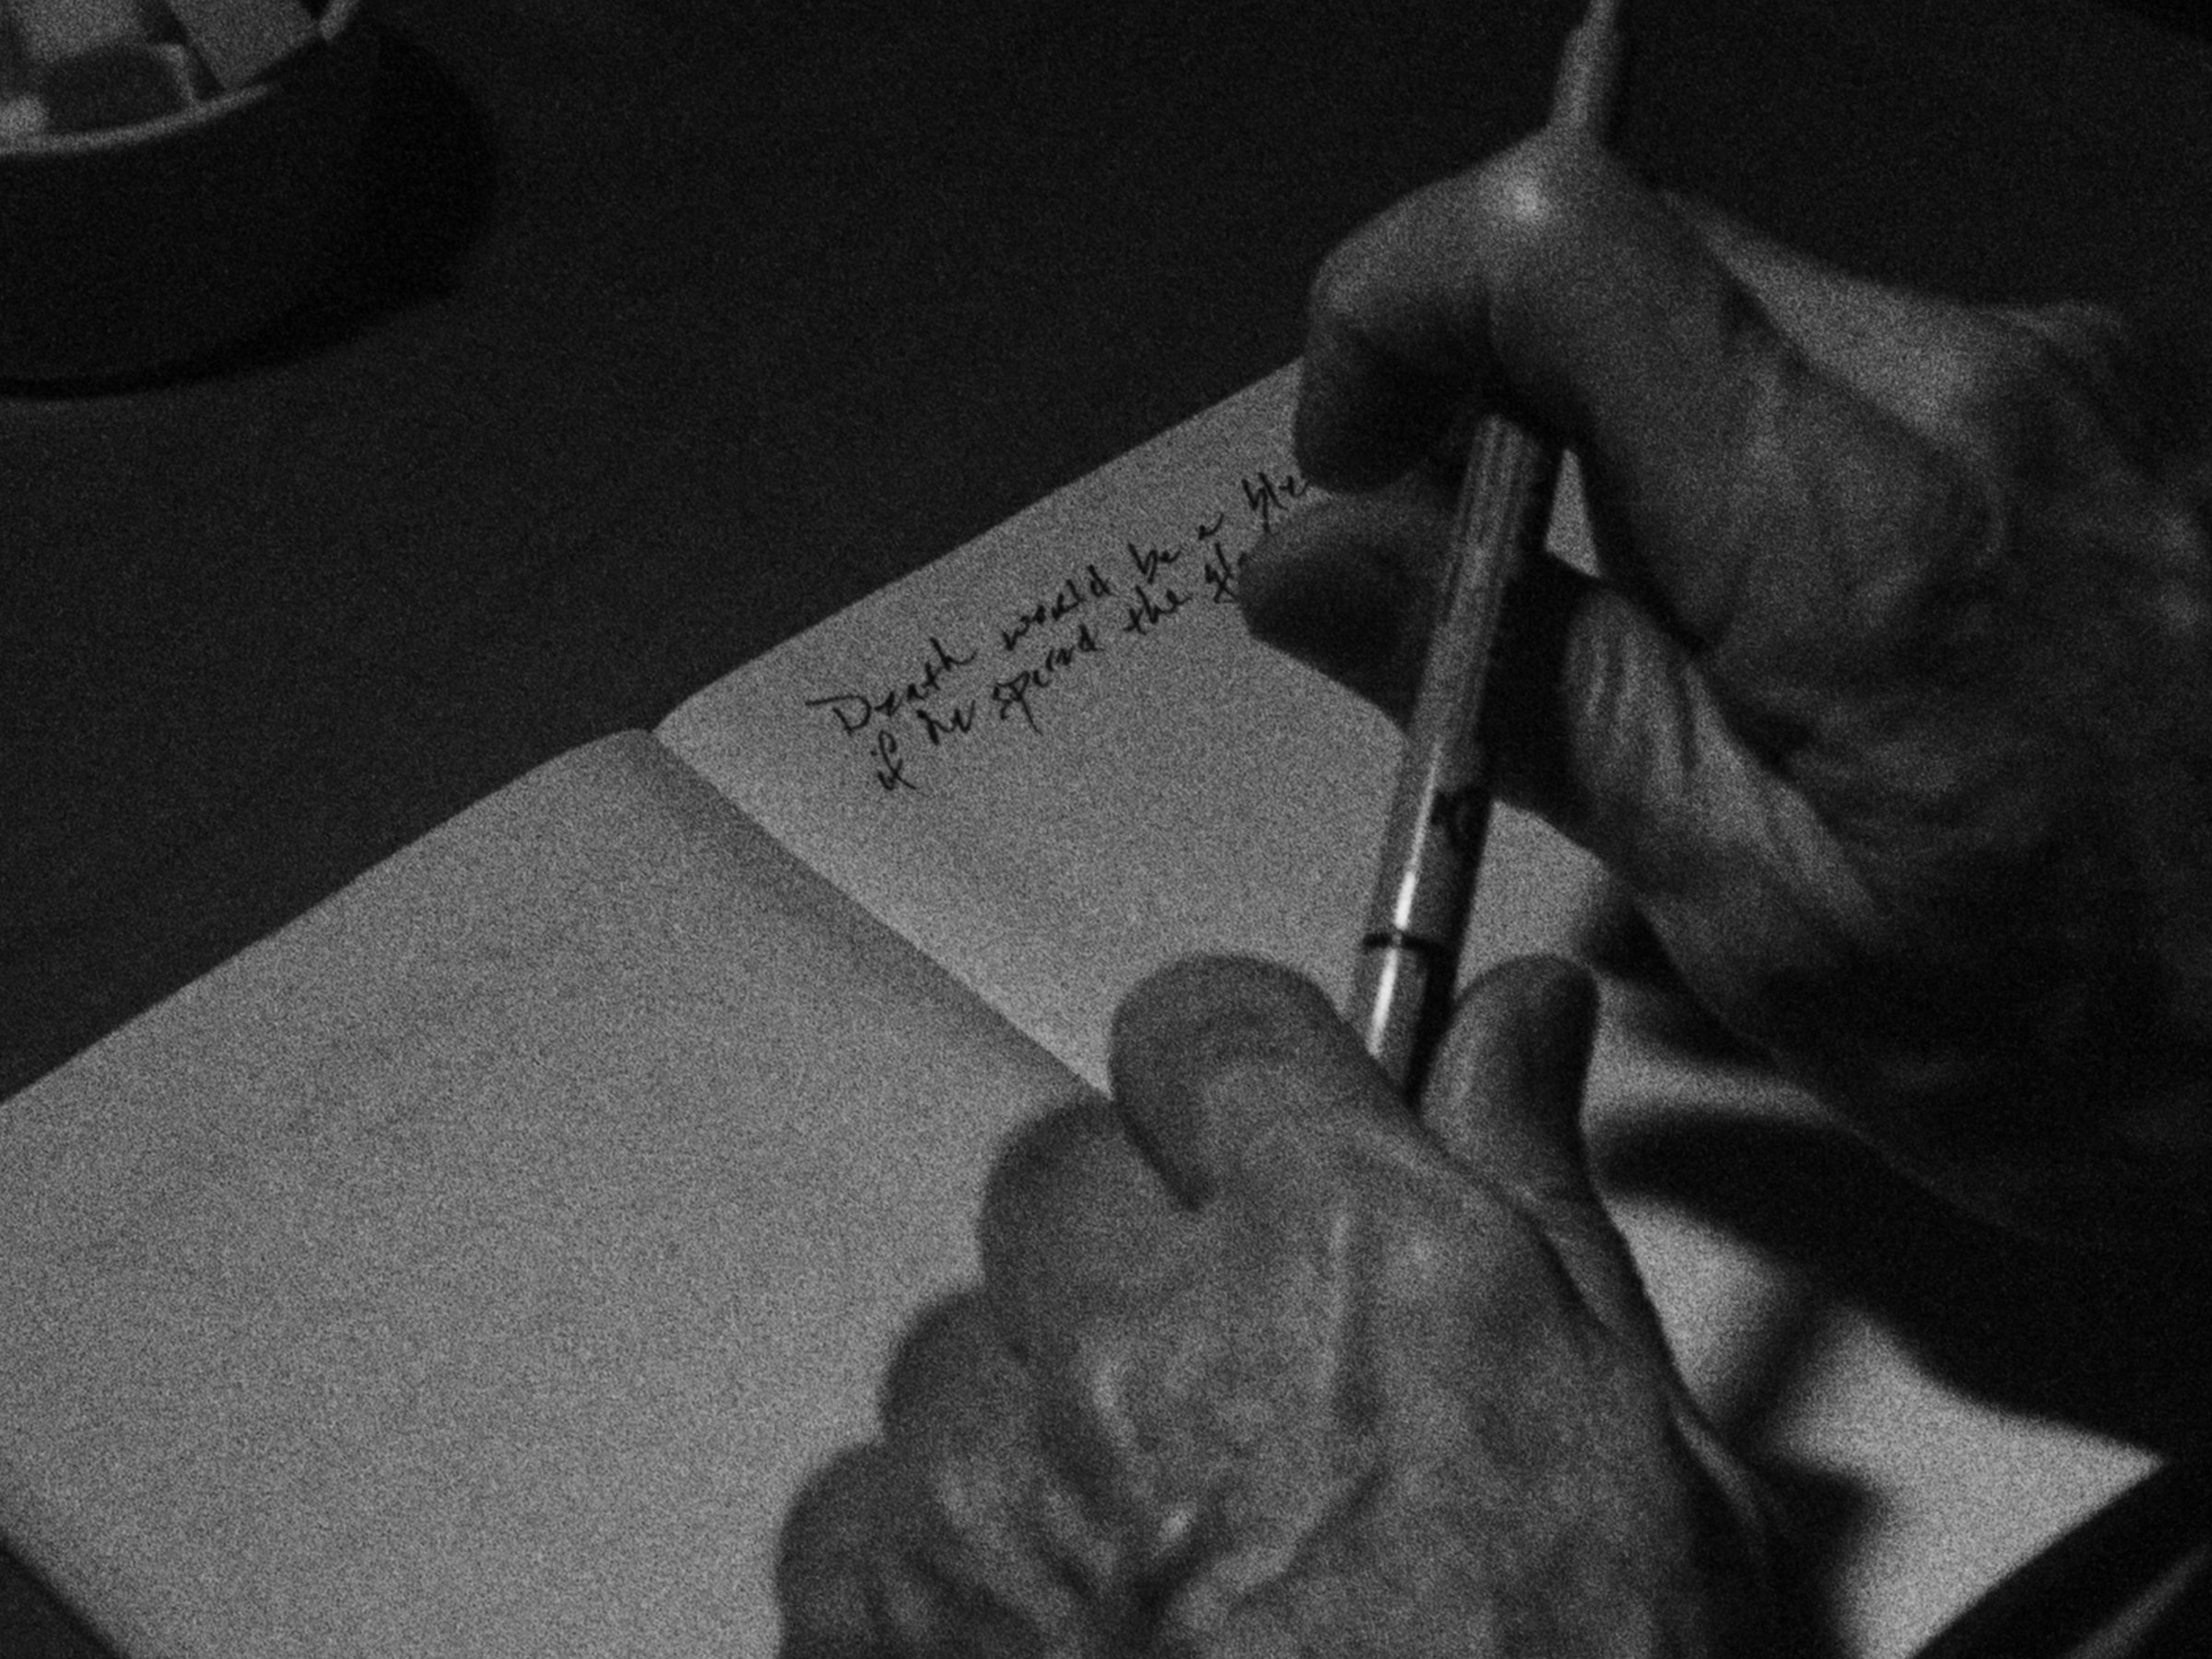 Death would be a ble
if he spend the